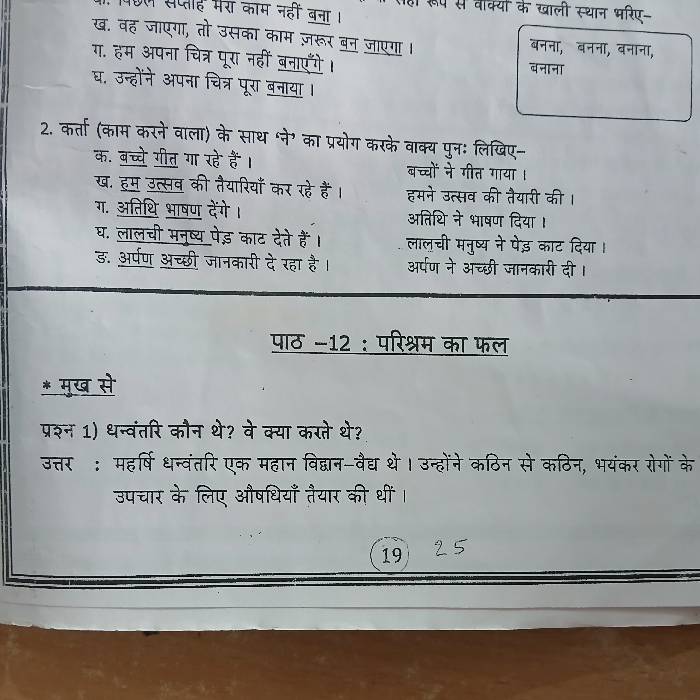 पिछले सप्ताह मेरा काम नहीं बना ।
सही रूप से वाक्यों के खाली स्थान भरिए–
ख. वह जाएगा, तो उसका काम ज़रूर बन जाएगा ।
ग. हम अपना चित्र पूरा नहीं बनाएँगे ।
घ. उन्होंने अपना चित्र पूरा बनाया ।
बनना, बनना, बनाना,
बनाना
2. कर्ता (काम करने वाला) के साथ ‘ने’ का प्रयोग करके वाक्य पुनः लिखिए–
क. बच्चे गीत गा रहे हैं । बच्चों ने गीत गाया ।
ख. हम उत्सव की तैयारियाँ कर रहे हैं । हमने उत्सव की तैयारी की ।
ग. अतिथि भाषण देंगे । अतिथि ने भाषण दिया ।
घ. लालची मनुष्य पेड़ काट देते हैं । लालची मनुष्य ने पेड़ काट दिया ।
ङ. अर्पण अच्छी जानकारी दे रहा है । अर्पण ने अच्छी जानकारी दी ।
पाठ –12 : परिश्रम का फल
* मुख से
प्रश्न 1) धन्वंतरि कौन थे? वे क्या करते थे?
उत्तर : महर्षि धन्वंतरि एक महान विद्वान–वैद्य थे । उन्होंने कठिन से कठिन, भयंकर रोगों के
उपचार के लिए औषधियाँ तैयार की थीं ।
19 25